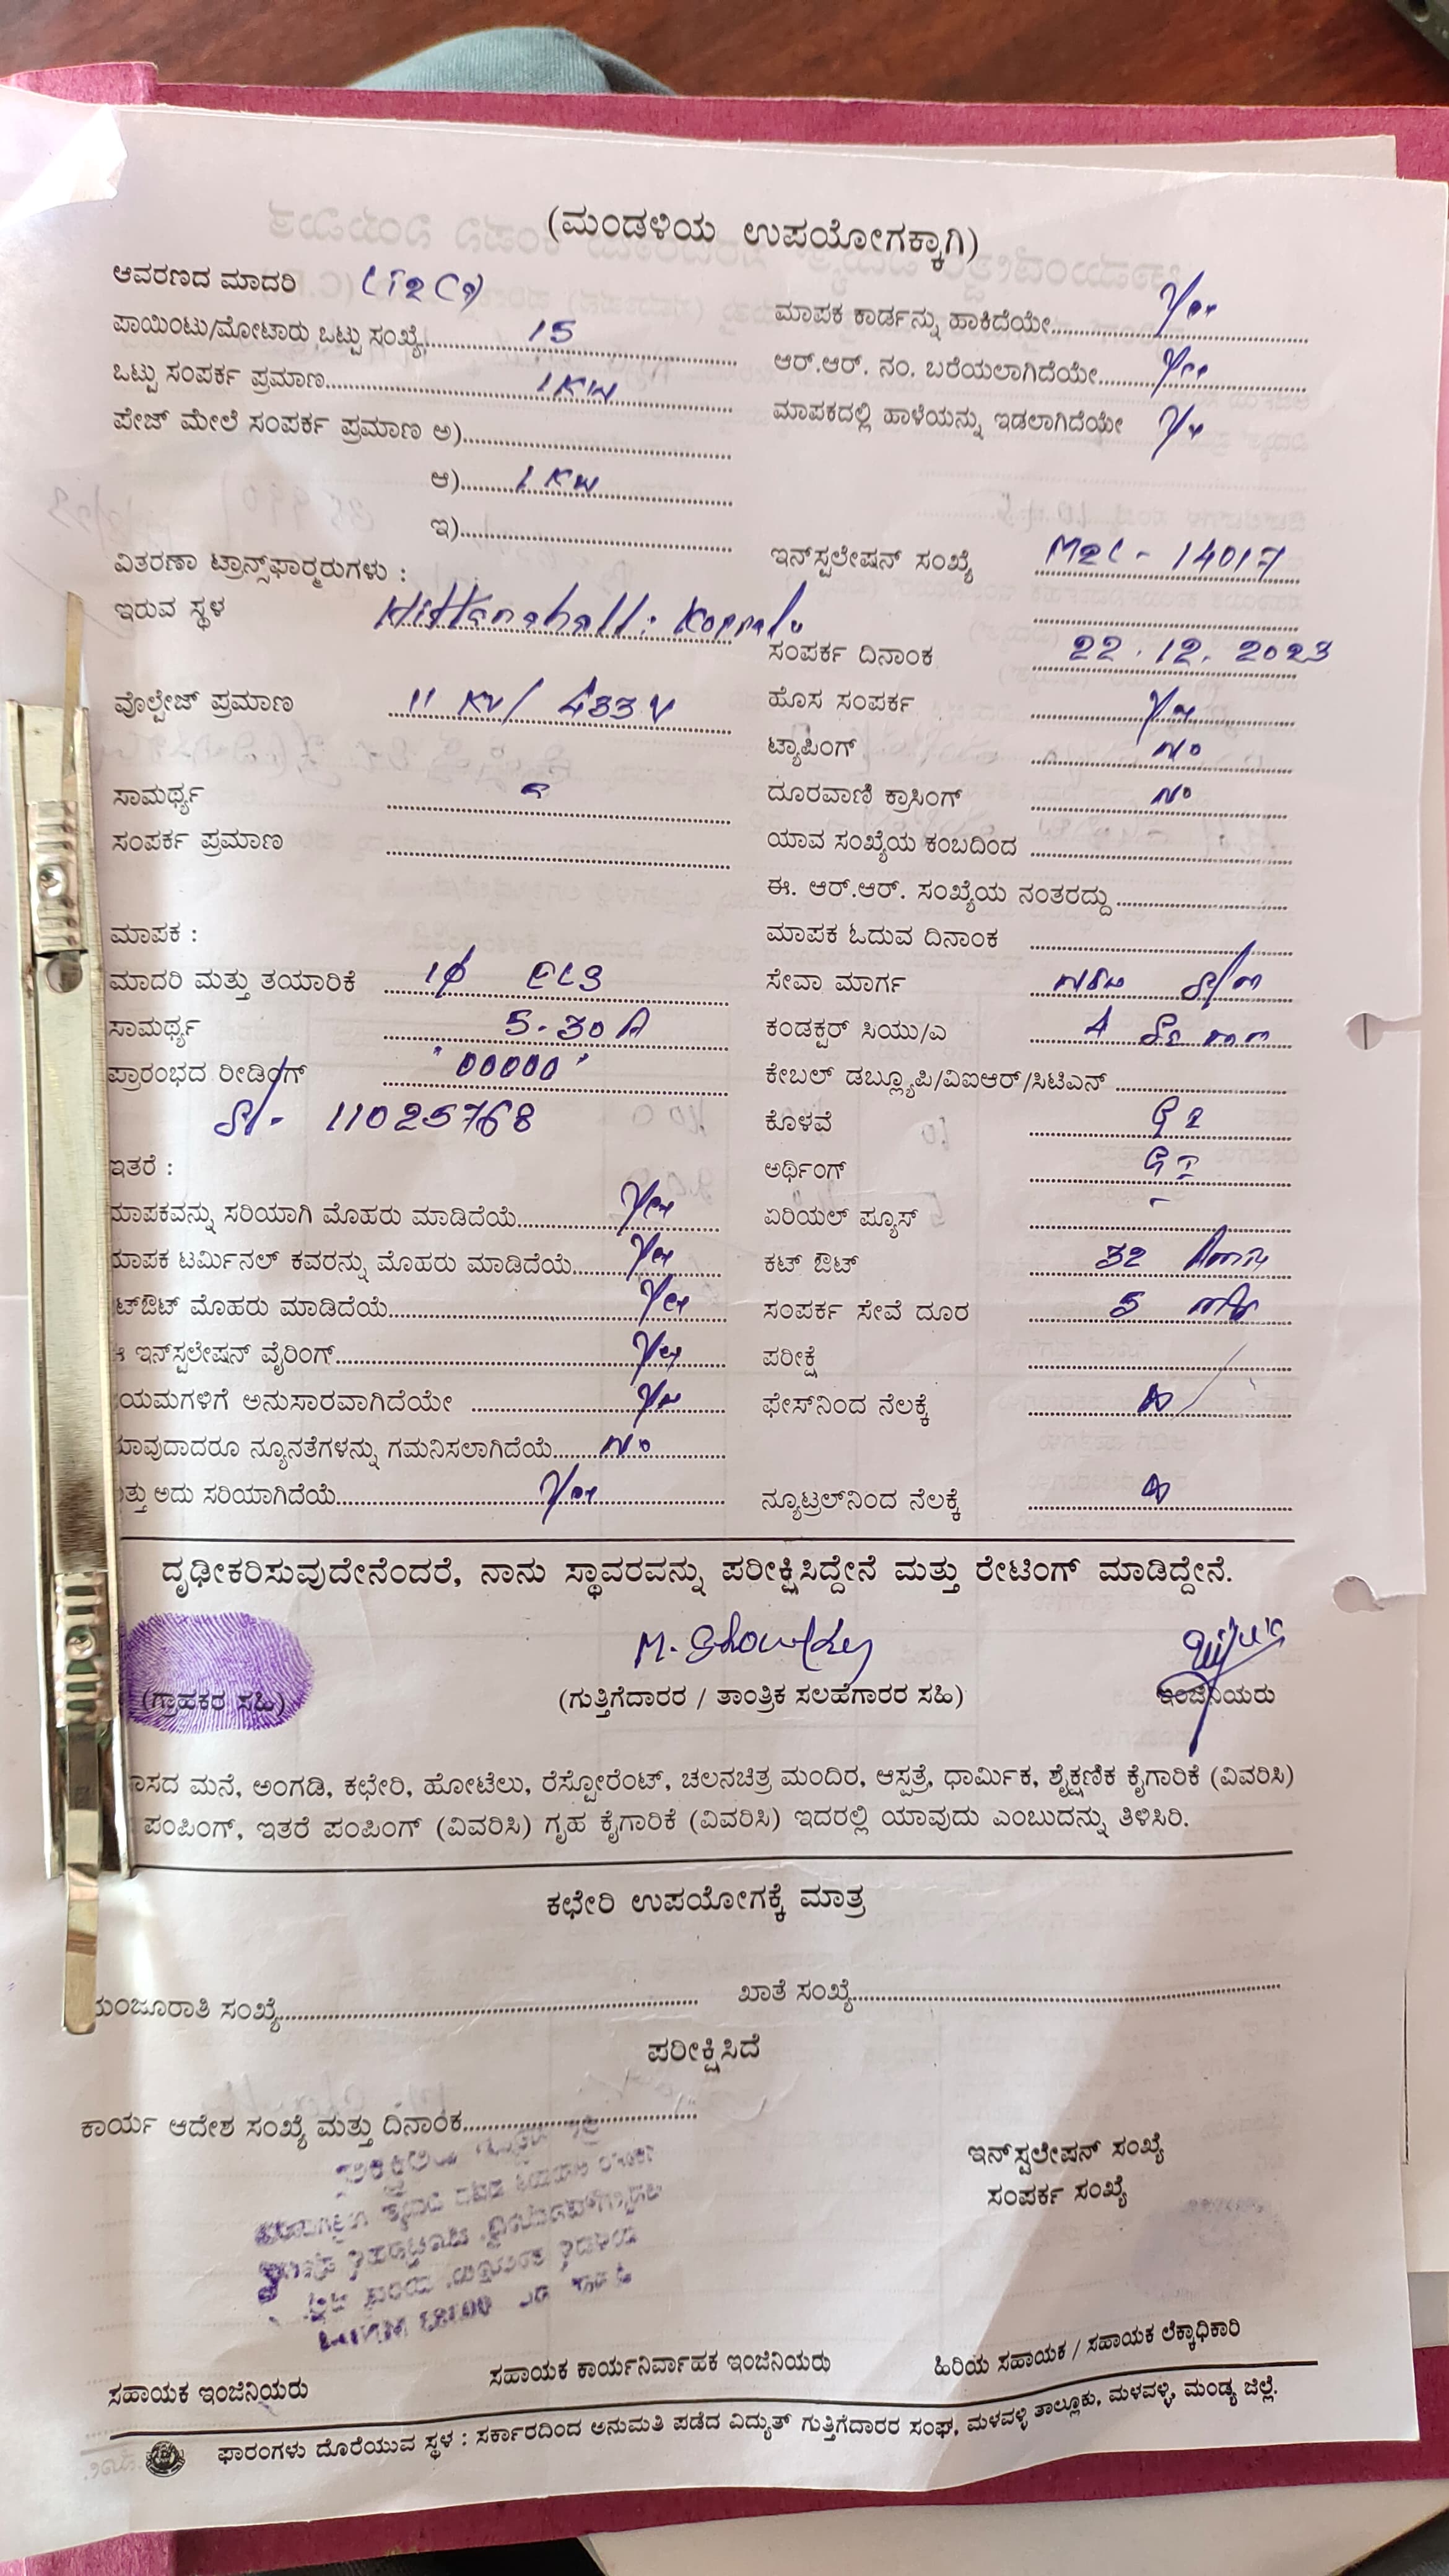 (ಮಂಡಳಿಯ ಉಪಯೋಗಕ್ಕಾಗಿ)
ಆವರಣದ ಮಾದರಿ
ಪಾಯಿಂಟು/ಮೋಟಾರು ಒಟ್ಟು ಸಂಖ್ಯೆ 15
ಒಟ್ಟು ಸಂಪರ್ಕ ಪ್ರಮಾಣ 1 KW
ಪೇಜ್ ಮೇಲೆ ಸಂಪರ್ಕ ಪ್ರಮಾಣ ಅ)
ಆ) 1 KW
ಇ)
ವಿತರಣಾ ಟ್ರಾನ್ಸ್‌ಫಾರ್‍ಮರುಗಳು :
ಇರುವ ಸ್ಥಳ Hittanahalli Koppalu
ವೊಲ್ಟೇಜ್ ಪ್ರಮಾಣ 11 KV / 433 V
ಸಾಮರ್ಥ್ಯ
ಸಂಪರ್ಕ ಪ್ರಮಾಣ
ಮಾಪಕ :
ಮಾದರಿ ಮತ್ತು ತಯಾರಿಕೆ 1φ
ಸಾಮರ್ಥ್ಯ 5-30 A
ಪ್ರಾರಂಭದ ರೀಡಿಂಗ್ "00000"
Sl- 11025768
ಇತರೆ :
ಮಾಪಕವನ್ನು ಸರಿಯಾಗಿ ಮೊಹರು ಮಾಡಿದೆಯೆ Yes
ಮಾಪಕ ಟರ್ಮಿನಲ್ ಕವರನ್ನು ಮೊಹರು ಮಾಡಿದೆಯೆ Yes
ಟ್‌ಔಟ್ ಮೊಹರು ಮಾಡಿದೆಯೆ Yes
ಇನ್‌ಸ್ಟಲೇಷನ್ ವೈರಿಂಗ್ Yes
ಯಮಗಳಿಗೆ ಅನುಸಾರವಾಗಿದೆಯೇ Yes
ಯಾವುದಾದರೂ ನ್ಯೂನತೆಗಳನ್ನು ಗಮನಿಸಲಾಗಿದೆಯೆ No
ತ್ತು ಅದು ಸರಿಯಾಗಿದೆಯೆ Yes
ಮಾಪಕ ಕಾರ್ಡನ್ನು ಹಾಕಿದೆಯೇ Yes
ಆರ್.ಆರ್. ನಂ. ಬರೆಯಲಾಗಿದೆಯೇ Yes
ಮಾಪಕದಲ್ಲಿ ಹಾಳೆಯನ್ನು ಇಡಲಾಗಿದೆಯೇ Yes
ಇನ್‌ಸ್ಟಲೇಷನ್ ಸಂಖ್ಯೆ - 14017
ಸಂಪರ್ಕ ದಿನಾಂಕ 22.12.2023
ಹೊಸ ಸಂಪರ್ಕ Yes
ಟ್ಯಾಪಿಂಗ್ No
ದೂರವಾಣಿ ಕ್ರಾಸಿಂಗ್ No
ಯಾವ ಸಂಖ್ಯೆಯ ಕಂಬದಿಂದ
ಈ. ಆರ್.ಆರ್. ಸಂಖ್ಯೆಯ ನಂತರದ್ದು
ಮಾಪಕ ಓದುವ ದಿನಾಂಕ
ಸೇವಾ ಮಾರ್ಗ
ಕಂಡಕ್ಟರ್ ಸಿಯು/ಎ 4 Sq mm
ಕೇಬಲ್ ಡಬ್ಲ್ಯೂಪಿ/ವಿಐಆರ್/ಸಿಟಿಎನ್
ಕೊಳವೆ GI
ಅರ್ಥಿಂಗ್ GI
ಏರಿಯಲ್ ಪ್ಯೂಸ್ -
ಕಟ್ ಔಟ್ 32
ಸಂಪರ್ಕ ಸೇವೆ ದೂರ 5
ಪರೀಕ್ಷೆ
ಫೇಸ್‌ನಿಂದ ನೆಲಕ್ಕೆ
ನ್ಯೂಟ್ರಲ್‌ನಿಂದ ನೆಲಕ್ಕೆ
ದೃಢೀಕರಿಸುವುದೇನೆಂದರೆ, ನಾನು ಸ್ಥಾವರವನ್ನು ಪರೀಕ್ಷಿಸಿದ್ದೇನೆ ಮತ್ತು ರೇಟಿಂಗ್ ಮಾಡಿದ್ದೇನೆ.
(ಗ್ರಾಹಕರ ಸಹಿ)
(ಗುತ್ತಿಗೆದಾರರ / ತಾಂತ್ರಿಕ ಸಲಹೆಗಾರರ ಸಹಿ)
ಇಂಜಿನಿಯರು
ಾಸದ ಮನೆ, ಅಂಗಡಿ, ಕಛೇರಿ, ಹೋಟೆಲು, ರೆಸ್ಟೋರೆಂಟ್, ಚಲನಚಿತ್ರ ಮಂದಿರ, ಆಸ್ಪತ್ರೆ, ಧಾರ್ಮಿಕ, ಶೈಕ್ಷಣಿಕ ಕೈಗಾರಿಕೆ (ವಿವರಿಸಿ)
ಪಂಪಿಂಗ್, ಇತರೆ ಪಂಪಿಂಗ್ (ವಿವರಿಸಿ) ಗೃಹ ಕೈಗಾರಿಕೆ (ವಿವರಿಸಿ) ಇದರಲ್ಲಿ ಯಾವುದು ಎಂಬುದನ್ನು ತಿಳಿಸಿರಿ.
ಕಛೇರಿ ಉಪಯೋಗಕ್ಕೆ ಮಾತ್ರ
ಮಂಜೂರಾತಿ ಸಂಖ್ಯೆ
ಖಾತೆ ಸಂಖ್ಯೆ
ಪರೀಕ್ಷಿಸಿದೆ
ಕಾರ್ಯ ಆದೇಶ ಸಂಖ್ಯೆ ಮತ್ತು ದಿನಾಂಕ
ಇನ್‌ಸ್ಟಲೇಷನ್ ಸಂಖ್ಯೆ
ಸಂಪರ್ಕ ಸಂಖ್ಯೆ
ಸಹಾಯಕ ಇಂಜಿನಿಯರು
ಸಹಾಯಕ ಕಾರ್ಯನಿರ್ವಾಹಕ ಇಂಜಿನಿಯರು
ಹಿರಿಯ ಸಹಾಯಕ / ಸಹಾಯಕ ಲೆಕ್ಕಾಧಿಕಾರಿ
ಫಾರಂಗಳು ದೊರೆಯುವ ಸ್ಥಳ : ಸರ್ಕಾರದಿಂದ ಅನುಮತಿ ಪಡೆದ ವಿದ್ಯುತ್ ಗುತ್ತಿಗೆದಾರರ ಸಂಘ, ಮಳವಳ್ಳಿ ತಾಲ್ಲೂಕು, ಮಳವಳ್ಳಿ, ಮಂಡ್ಯ ಜಿಲ್ಲೆ.